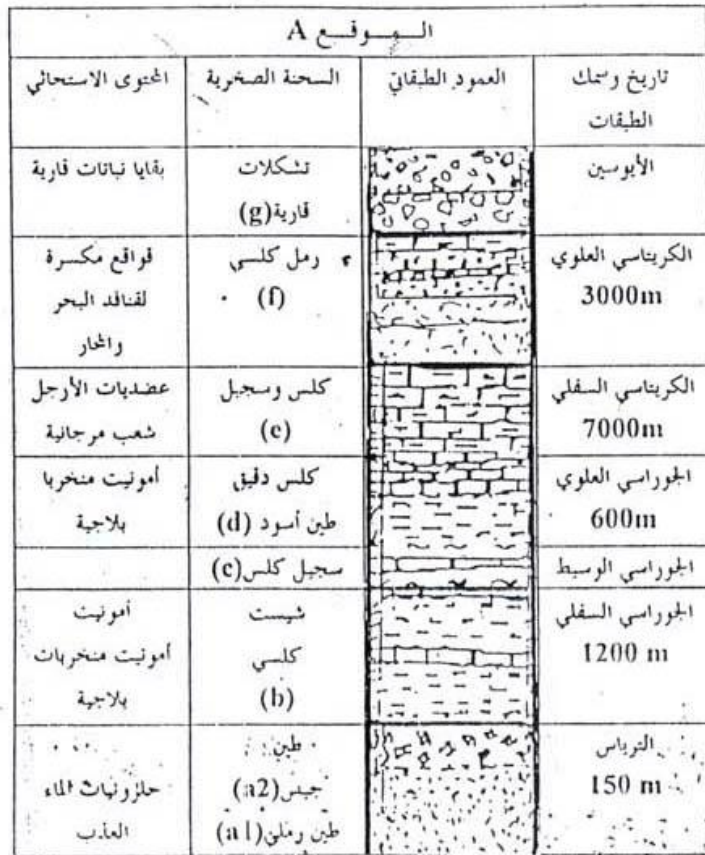 الموقع A
تاريخ وسمك
الطبقات
العمود الطبقاتي
السحنة الصخرية
المحتوى الاستحاثي
الأيوسين
تشكلات
قارية (g)
بقايا نباتات قارية
الكريتاسي العلوي
3000m
رمل كلسي
(f)
قواقع مكسرة
لقنافد البحر
والمحار
الكريتاسي السفلي
7000m
كلس وسجيل
(e)
عضديات الأرجل
شعب مرجانية
الجوراسي العلوي
600m
كلس دقيق
طين أسود (d)
أمونيت منخربا
بلاجية
الجوراسي الوسيط
سجيل كلس (c)
الجوراسي السفلي
1200 m
شيست
كلسي
(b)
أمونيت
أمونيت منخربات
بلاجية
الترياس
150 m
طين
جبس (a2)
طين رملي (a1)
حلزونيات الماء
العذب